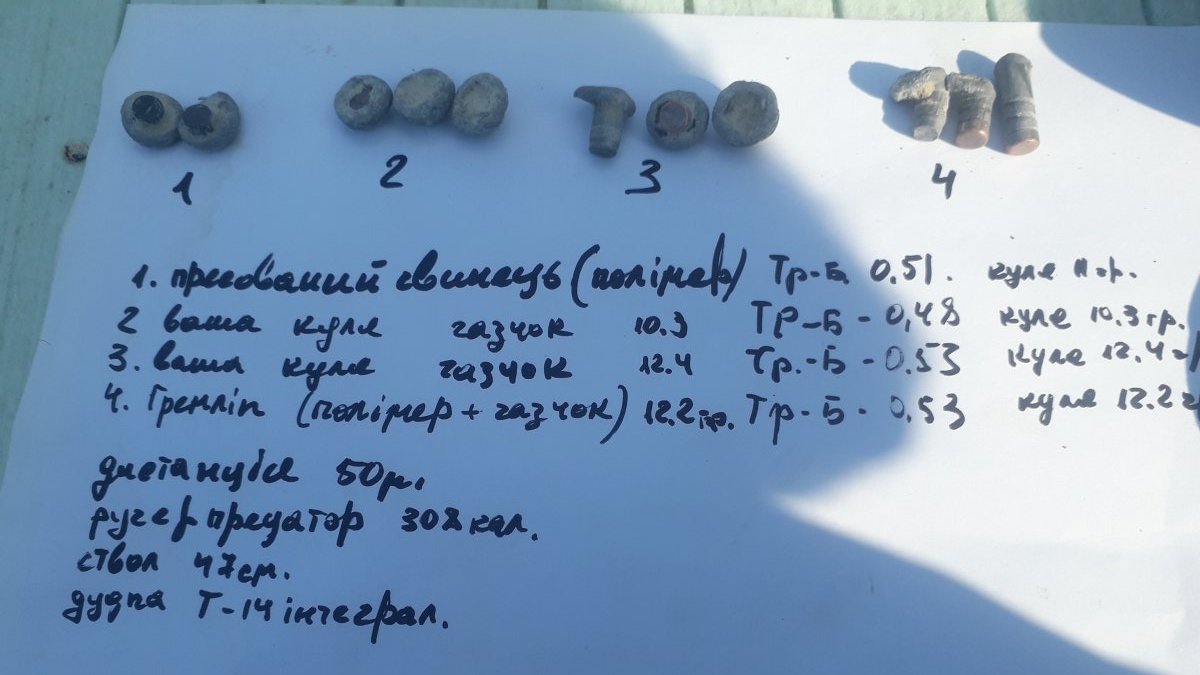 1 2 3 4
1. пресований свинець (полімер) Тр-Б 0,51. куля 11 гр.
2 ваша куля газчок 10.3 ТР-Б - 0,48 куля 10.3 гр.
3. ваша куля газчок 12.4 Тр.-Б - 0.53 куля 12.4
4. Гремлін (полімер + газчок) 12.2 гр. Тр-Б - 0,53 куля 12.2
дистанція 50м.
ругер предатор 308 кал.
ствол 47 см.
дудка Т-14 інтеграл.